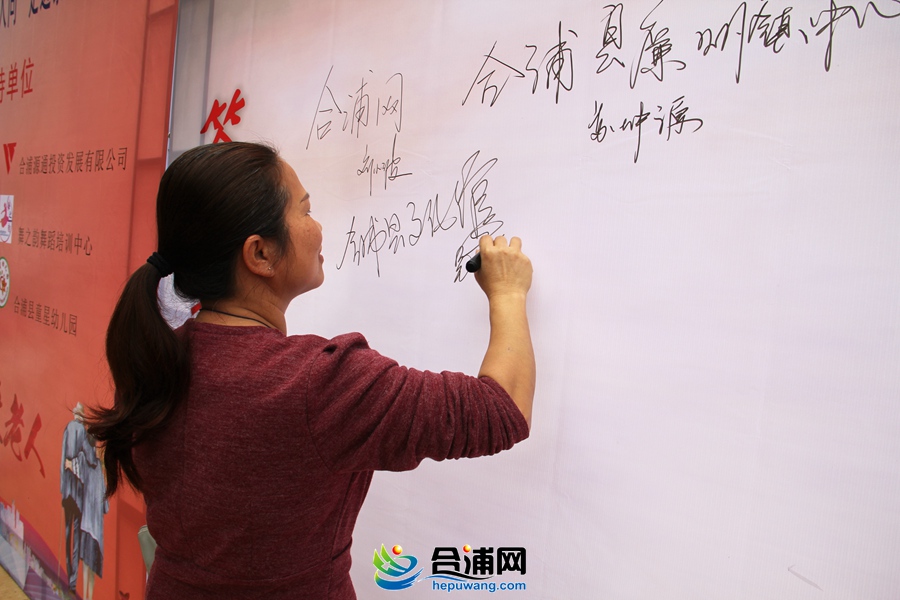 单位
合浦源通投资发展有限公司
舞之韵舞蹈培训中心
合浦县童星幼儿园
老人
签
合浦网
合浦县文化馆
合浦县廉州镇中心
苏坤源
合浦网
hepuwang.com